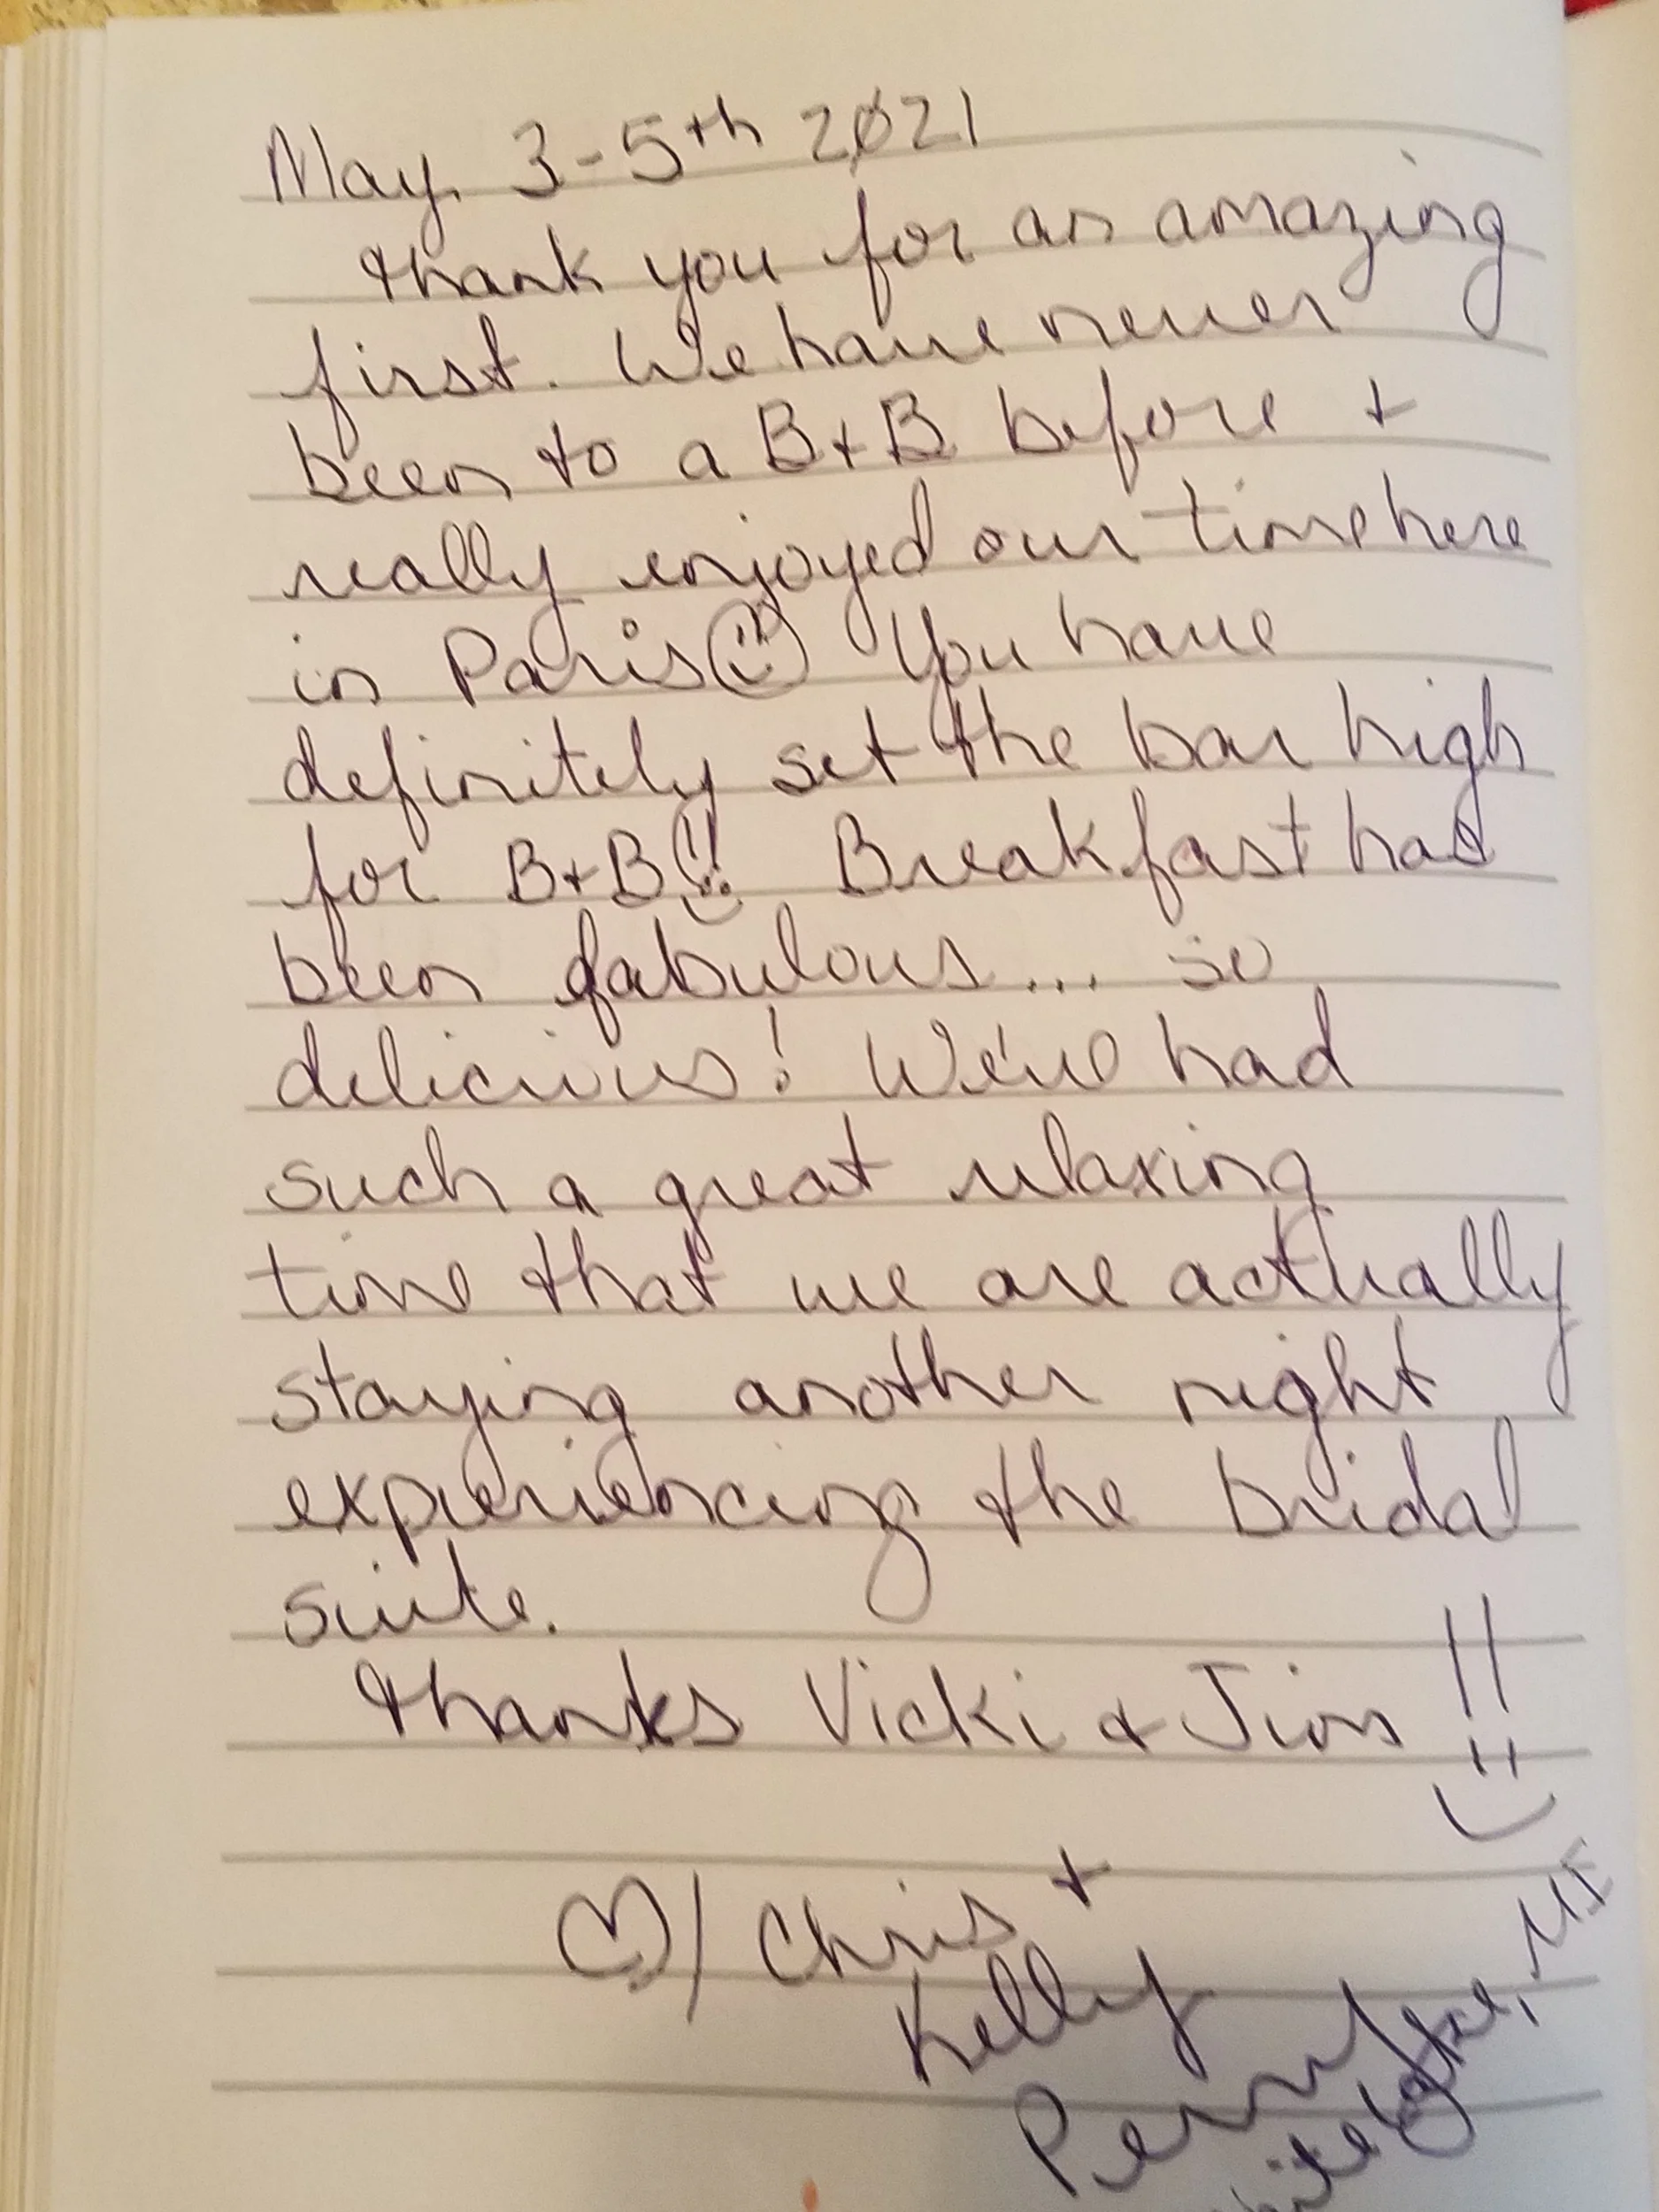 May. 3-5th 2021
thank you for an amazing
first. We have never
been to a B+B before +
really enjoyed our time here
in Paris☺ You have
definitely set the bar high
for B+B!! Breakfast has
been fabulous... so
delicious! We've had
such a great relaxing
time that we are actually
staying another night
experiencing the bridal
suite.
thanks Vicki & Jim !!
♡/ Chris +
Kelly
Lake, MI